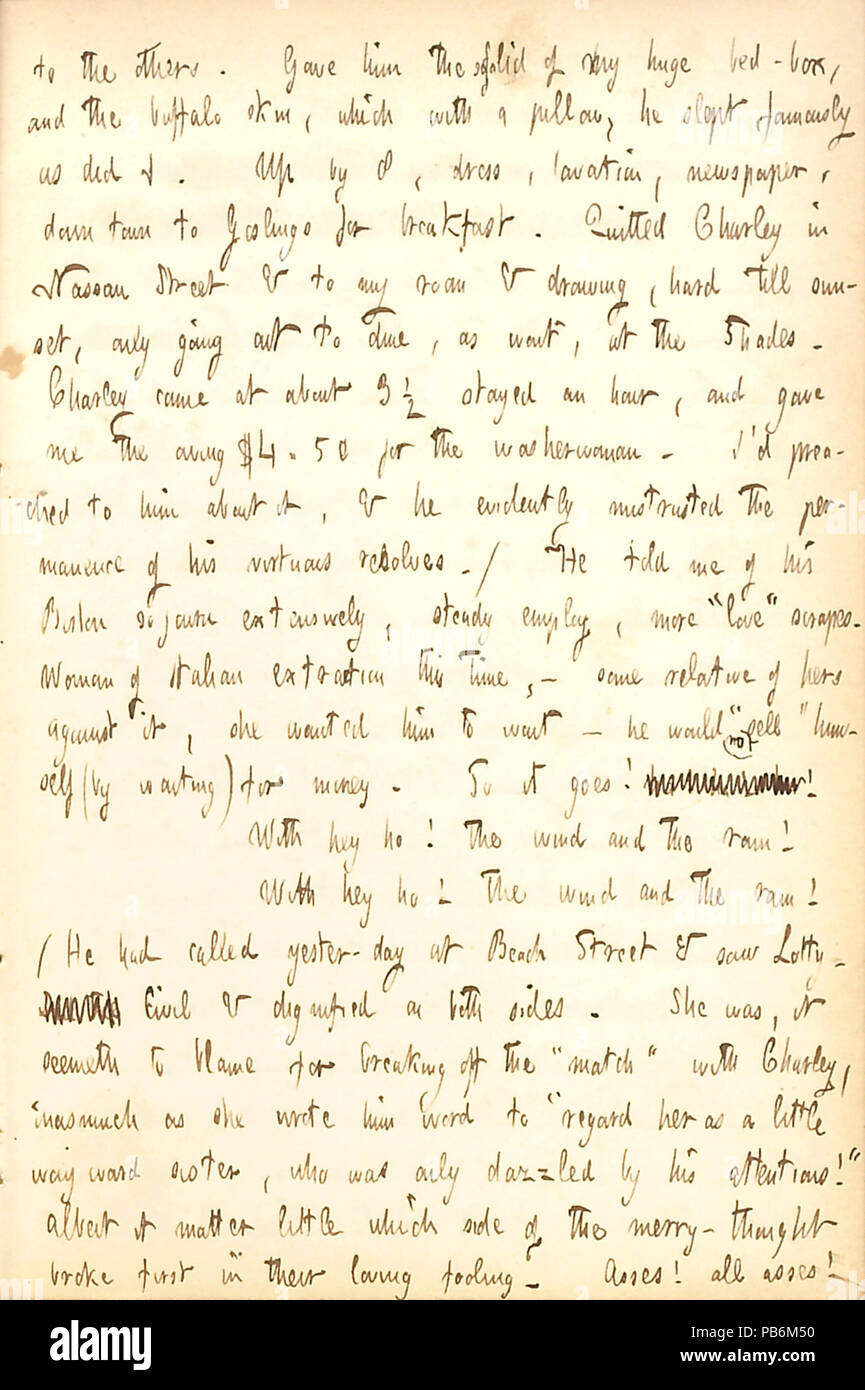 to the others. Gave him the solid of my huge bed-box,
and the buffalo skin, which with a pillow, he slept famously
as did I. Up by 8, dress, lavation, newspaper,
down town to Goslings for breakfast. Quitted Charley in
Nassau Street & to my room & drawing, hard till sun-
set, only going out to dine, as wont, at the Shades.
Charley came at about 3 ½ stayed an hour, and gave
me the owing $4.50 for the washerwoman. I'd prea-
ched to him about it, & he evidently mistrusted the per-
manence of his virtuous resolves. / He told me of his
Boston sojourn extensively, steady employ, more "love" scrapes.
Woman of Italian extraction this time, — some relative of hers
against it, she wanted him to wait — he would not "sell" him-
self (by waiting) for money. So it goes!
With hey ho! the wind and the rain!
With hey ho! the wind and the rain!
/ He had called yester-day at Beach Street & saw Lotty.
Civil & dignified on both sides. She was, it
seemeth to blame for breaking off the "match" with Charley,
inasmuch as she wrote him word to "regard her as a little
wayward sister, who was only dazzled by his attentions!"
Albeit it matter little which side of the merry-thought
broke first in their loving fooling. Asses! all asses!
alamy
Image ID: PB6M50
www.alamy.com